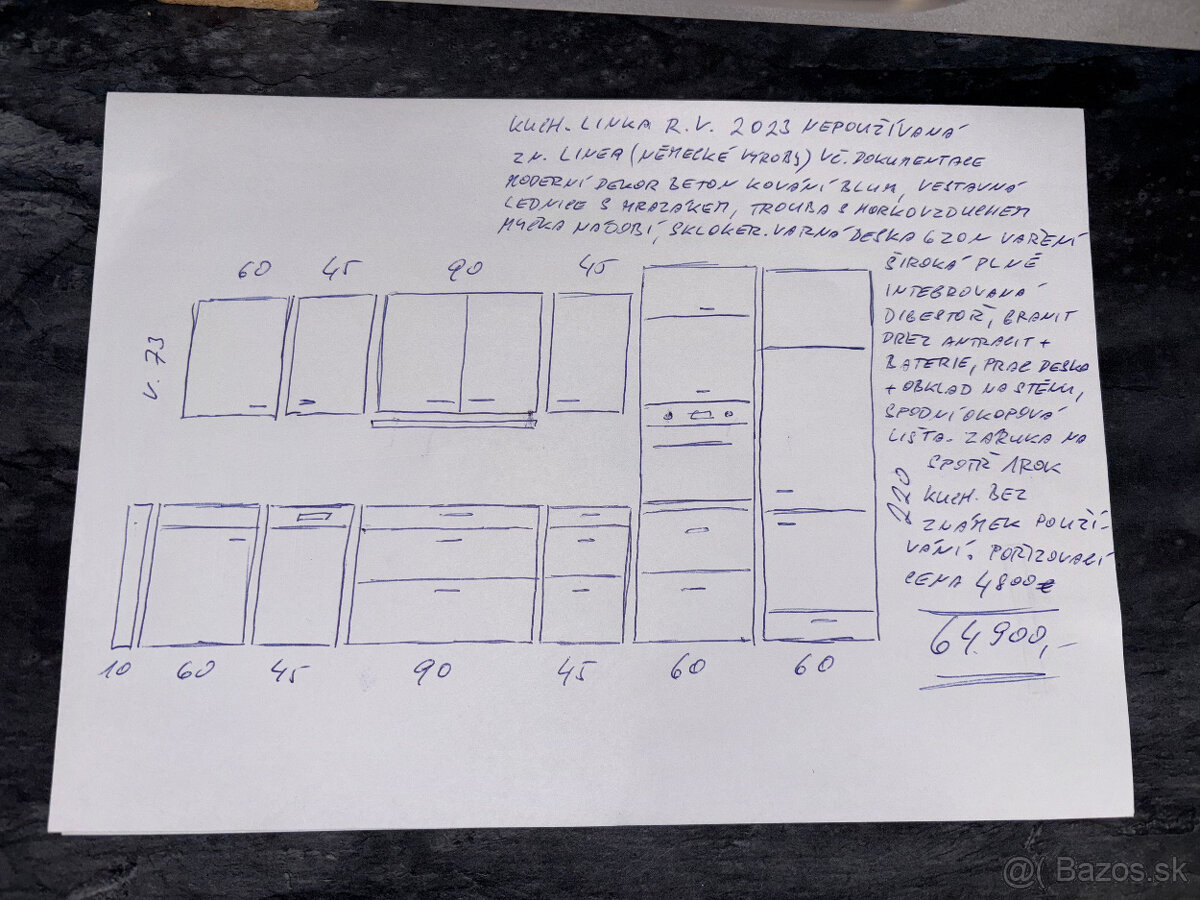 KUCH. LINKA R.V. 2023 NEPOUŽÍVANÁ
ZN. LINEA (NĚMECKÉ VÝROBY) VČ. DOKUMENTACE
MODERNÍ DEKOR BETON KOVÁNÍ BLUM, VESTAVNÁ
LEDNICE S MRAZÁKEM, TROUBA S HORKOVZDUCHEM
MYČKA NÁDOBÍ, SKLOKER. VARNÁ DESKA 6 ZON VAŘENÍ
ŠIROKÁ PLNĚ
INTEGROVANÁ
DIGESTOŘ, GRANIT
DREZ ANTRACIT +
BATERIE, PRAC DESKA
+ OBKLAD NA STĚNU,
SPODNÍ OKOPOVÁ
LIŠTA. ZÁRUKA NA
SPOTŘ 1 ROK
KUCH. BEZ
ZNÁMEK POUŽÍ-
VÁNÍ. POŘIZOVACÍ
CENA 4800€
64.900,-
60 45 90 45
V. 73
220
10 60 45 90 45 60 60
@( Bazos.sk